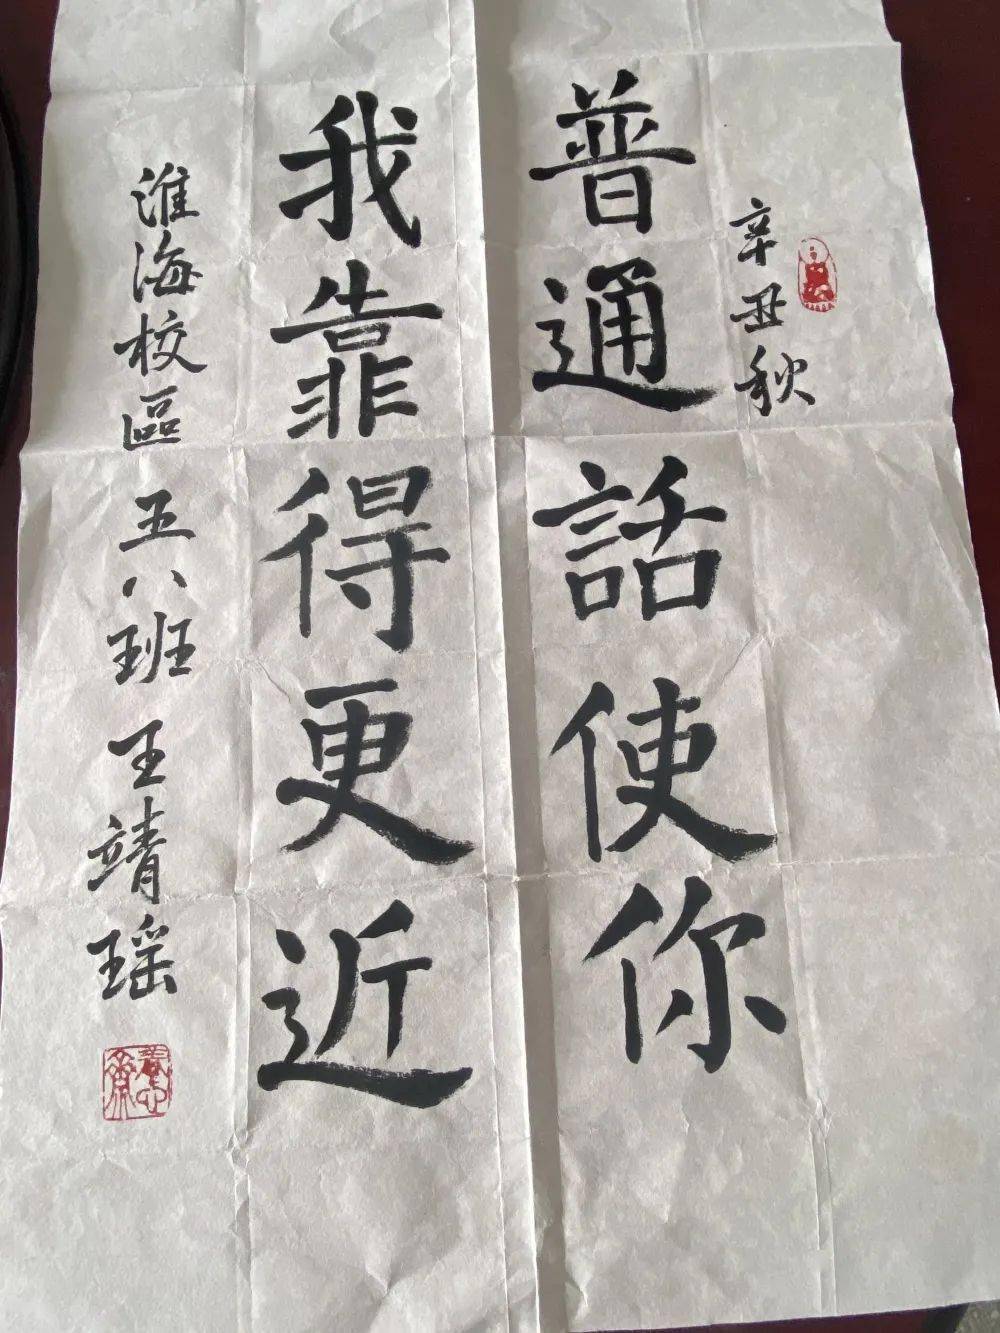 辛丑秋
普通話使你
我靠得更近
淮海校區 五八班 王靖瑶